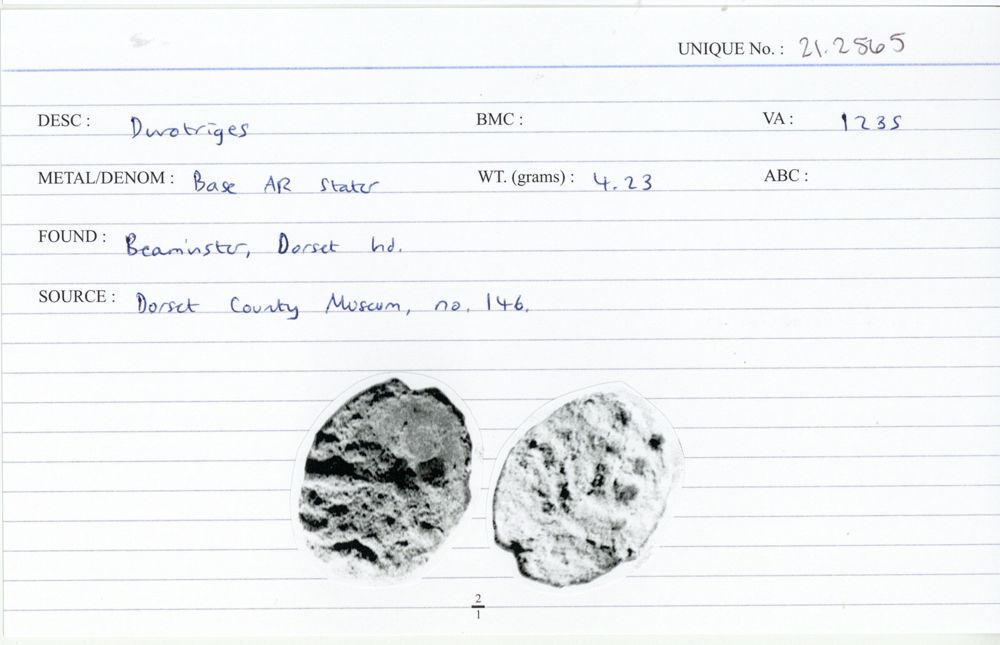 UNIQUE No. : 21.2565
DESC : Durotriges BMC : VA : 1235
METAL/DENOM : Base AR Stater WT. (grams) : 4.23 ABC :
FOUND : Beaminster, Dorset hd.
SOURCE : Dorset County Museum, no. 146.
2
1